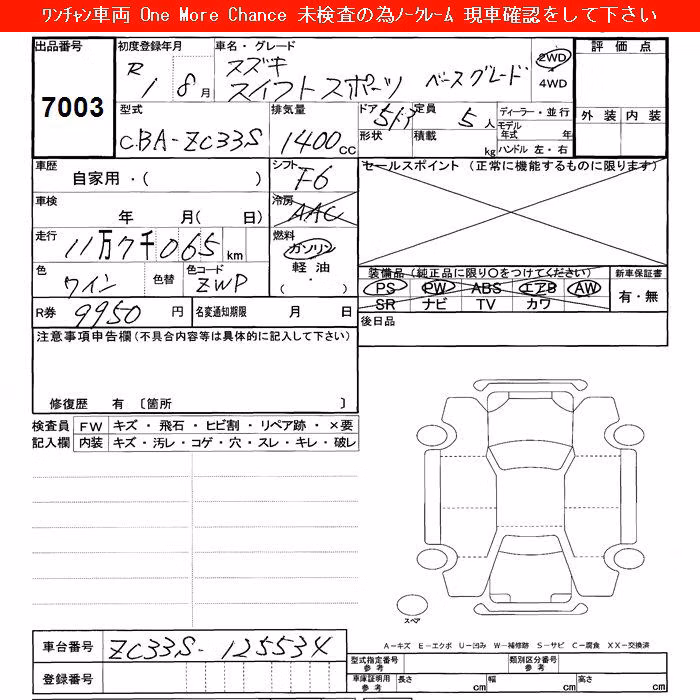 ﾜﾝﾁｬﾝ車両 One More Chance 未検査の為ﾉｰｸﾚｰﾑ 現車確認をして下さい
出品番号 初度登録年月 車名・グレード 評価点
7003 R 1 8月 スズキ スイフトスポーツ ベースグレード 2WD 4WD
型式 排気量 ドア 定員 ディーラー・並行 外装 内装
CBA-ZC33S 1400cc 5ドア 5人 モデル年式 年
形状 積載 kg ハンドル 左・右
車歴 自家用・( ) シフト F6 セールスポイント (正常に機能するものに限ります)
車検 年 月( 日) 冷房 AAC
走行 11万7千065 km 燃料 ガソリン 軽油 ・( )
色 ワイン 色替 色コード ZWP 装備品 (純正品に限り〇をつけてください) 新車保証書
PS PW ABS エアB AW 有・無
SR ナビ TV カワ
R券 9950円 名変通知期限 月 日 後日品
注意事項申告欄 (不具合内容等は具体的に記入して下さい)
修復歴 有 〔箇所 〕
検査員 FW キズ・飛石・ヒビ割・リペア跡・×要
記入欄 内装 キズ・汚レ・コゲ・穴・スレ・キレ・破レ
スペア
車台番号 ZC33S-125534 A-キズ E-エクボ U-凹み W-補修跡 S-サビ C-腐食 XX-交換済
型式指定番号 参考 類別区分番号 参考
登録番号 車庫証明用 参考 長さ cm 幅 cm 高さ cm